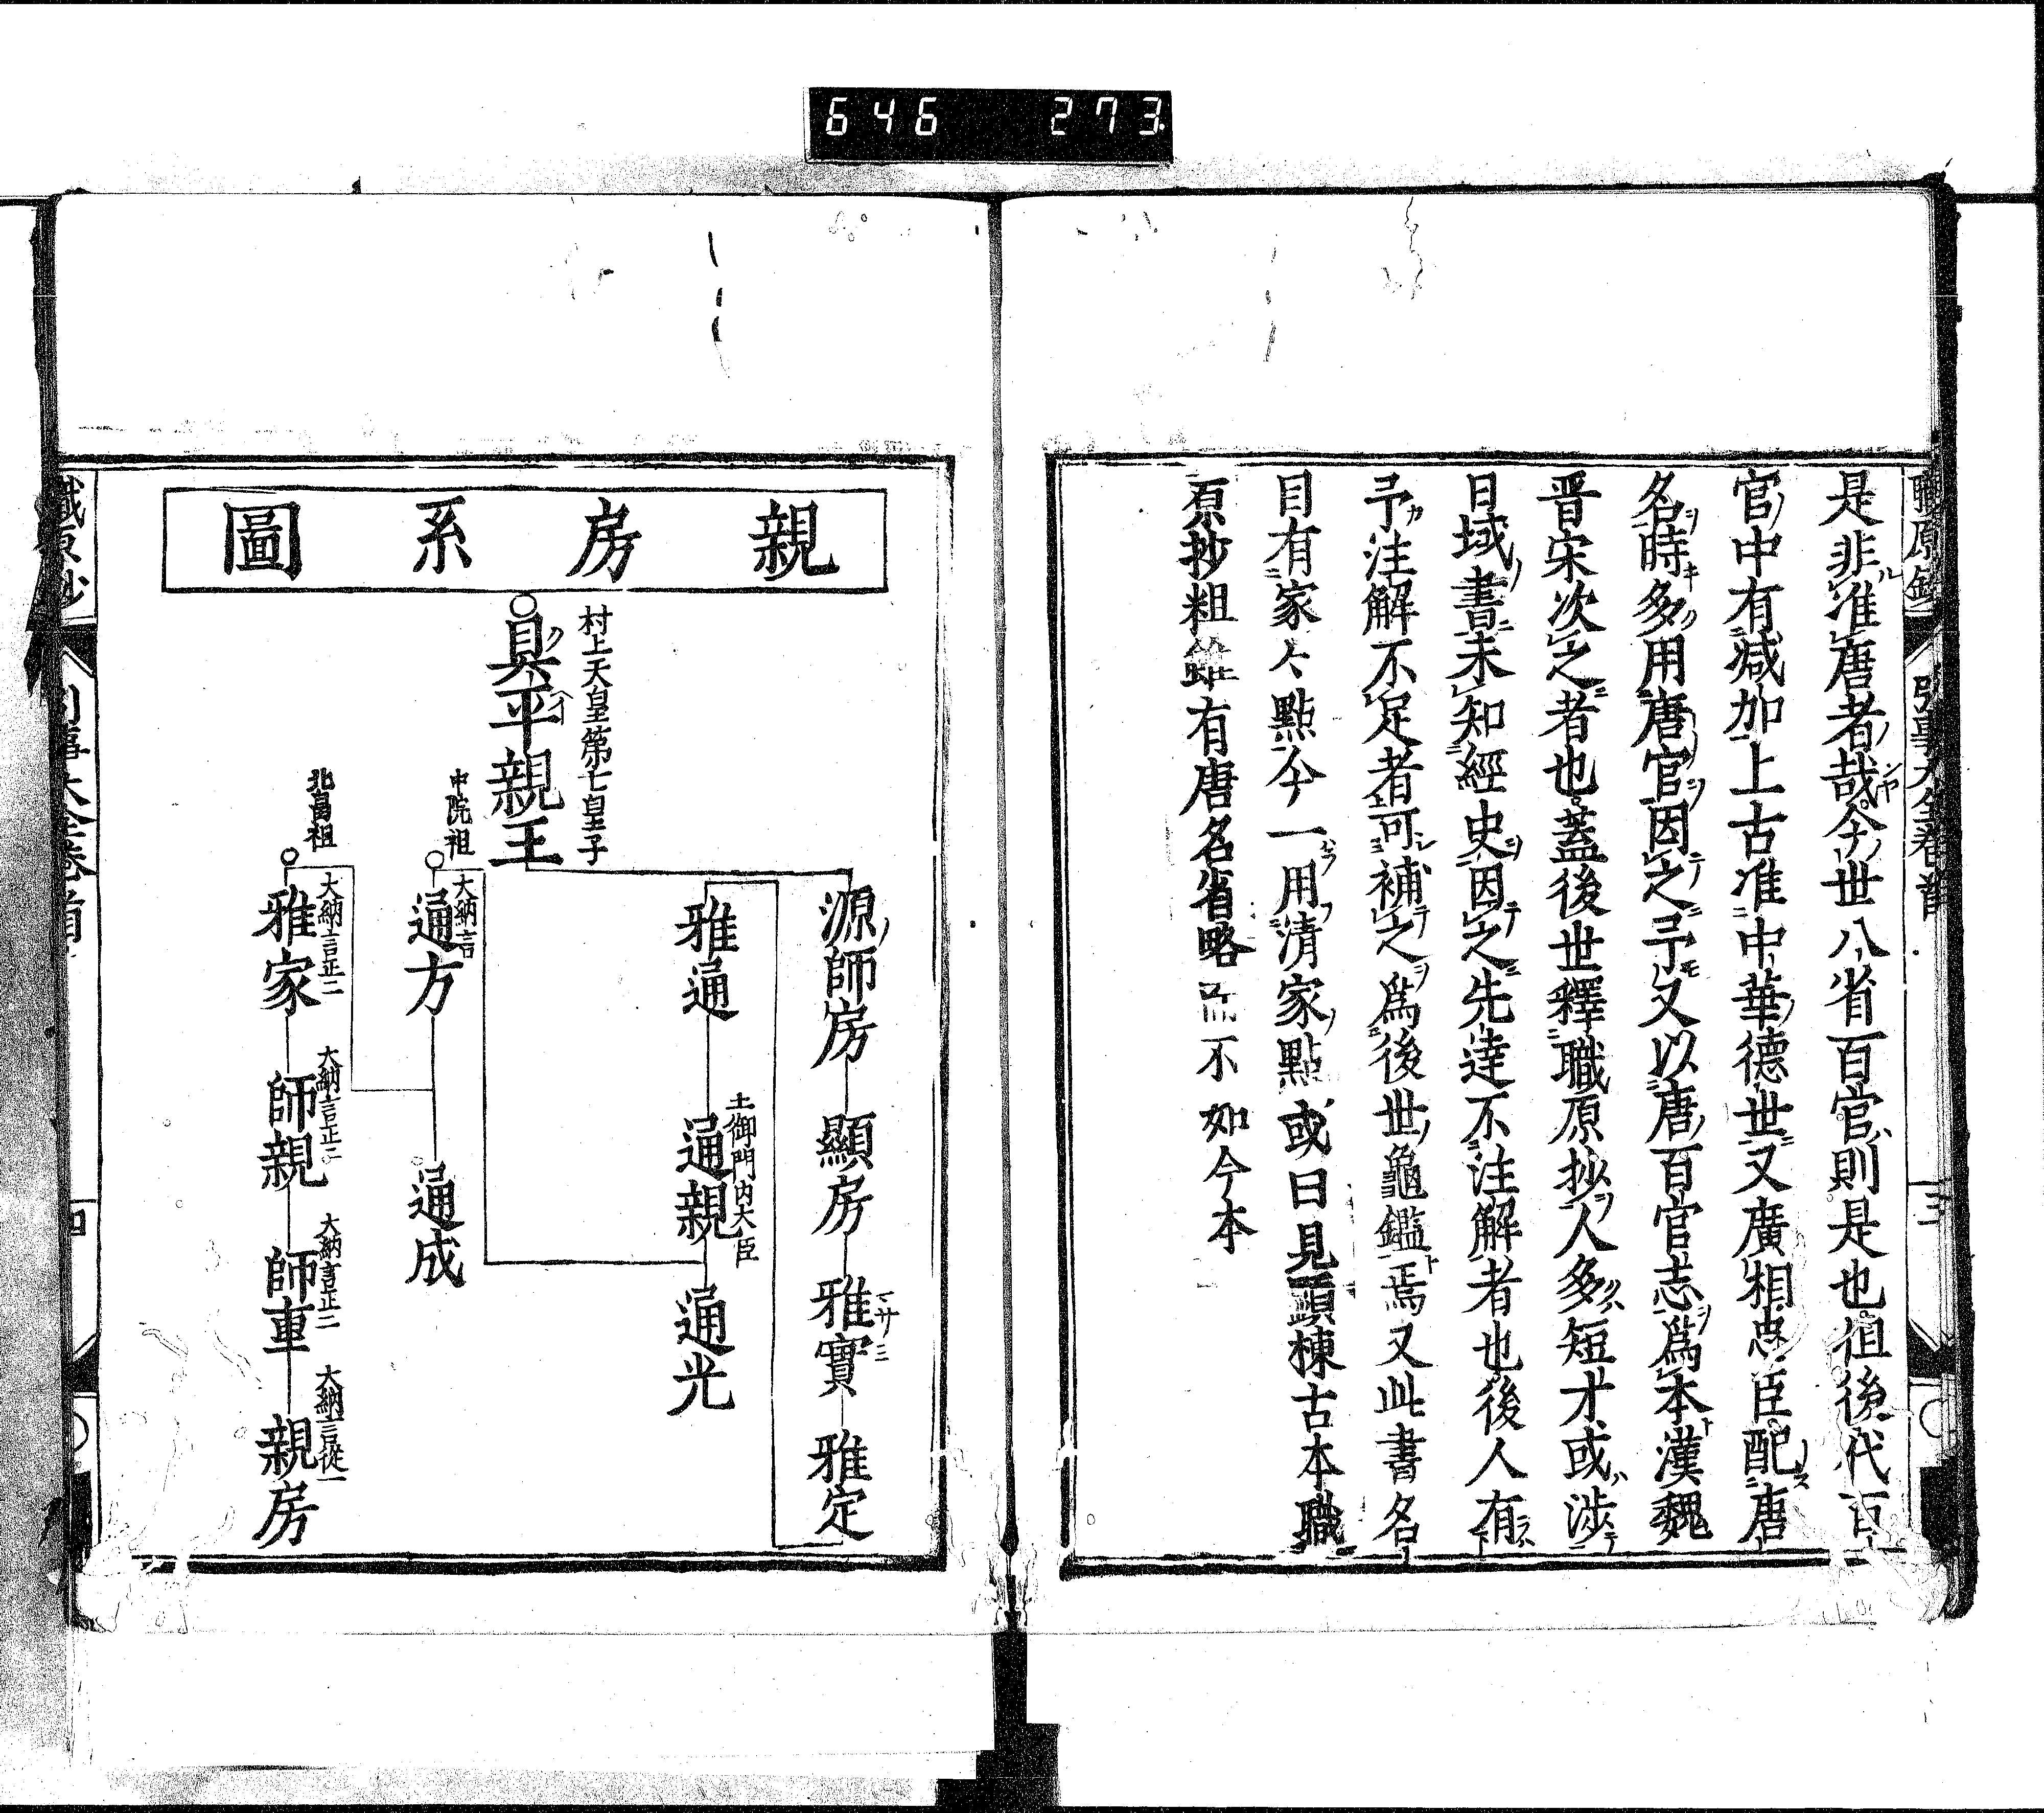 646 273
是非准唐者哉今世八省百官則是也徂後代百
官中有減加上古准中華德世又廣相忠臣配唐
名時多用唐官因之予又以唐百官志爲本漢魏
晋宋次之者也蓋後世釋職原抄人多短才或涉
日域書未知經史因之先達不注解者也後人有
予注解不足者可補之爲後世龜鑑焉又此書名
目有家々點今一用清家點或曰見顕棟古本職
原抄粗雖有唐名省略而不如今本
親房系圖
村上天皇第七皇子
具平親王
源師房 顯房 雅實 雅定
雅通 通親 通光
土御門内大臣
中院祖
大納言
通方 通成
北畠祖
大納言正二 大納言正二 大納言正二 大納言從一
雅家 師親 師重 親房
職原抄